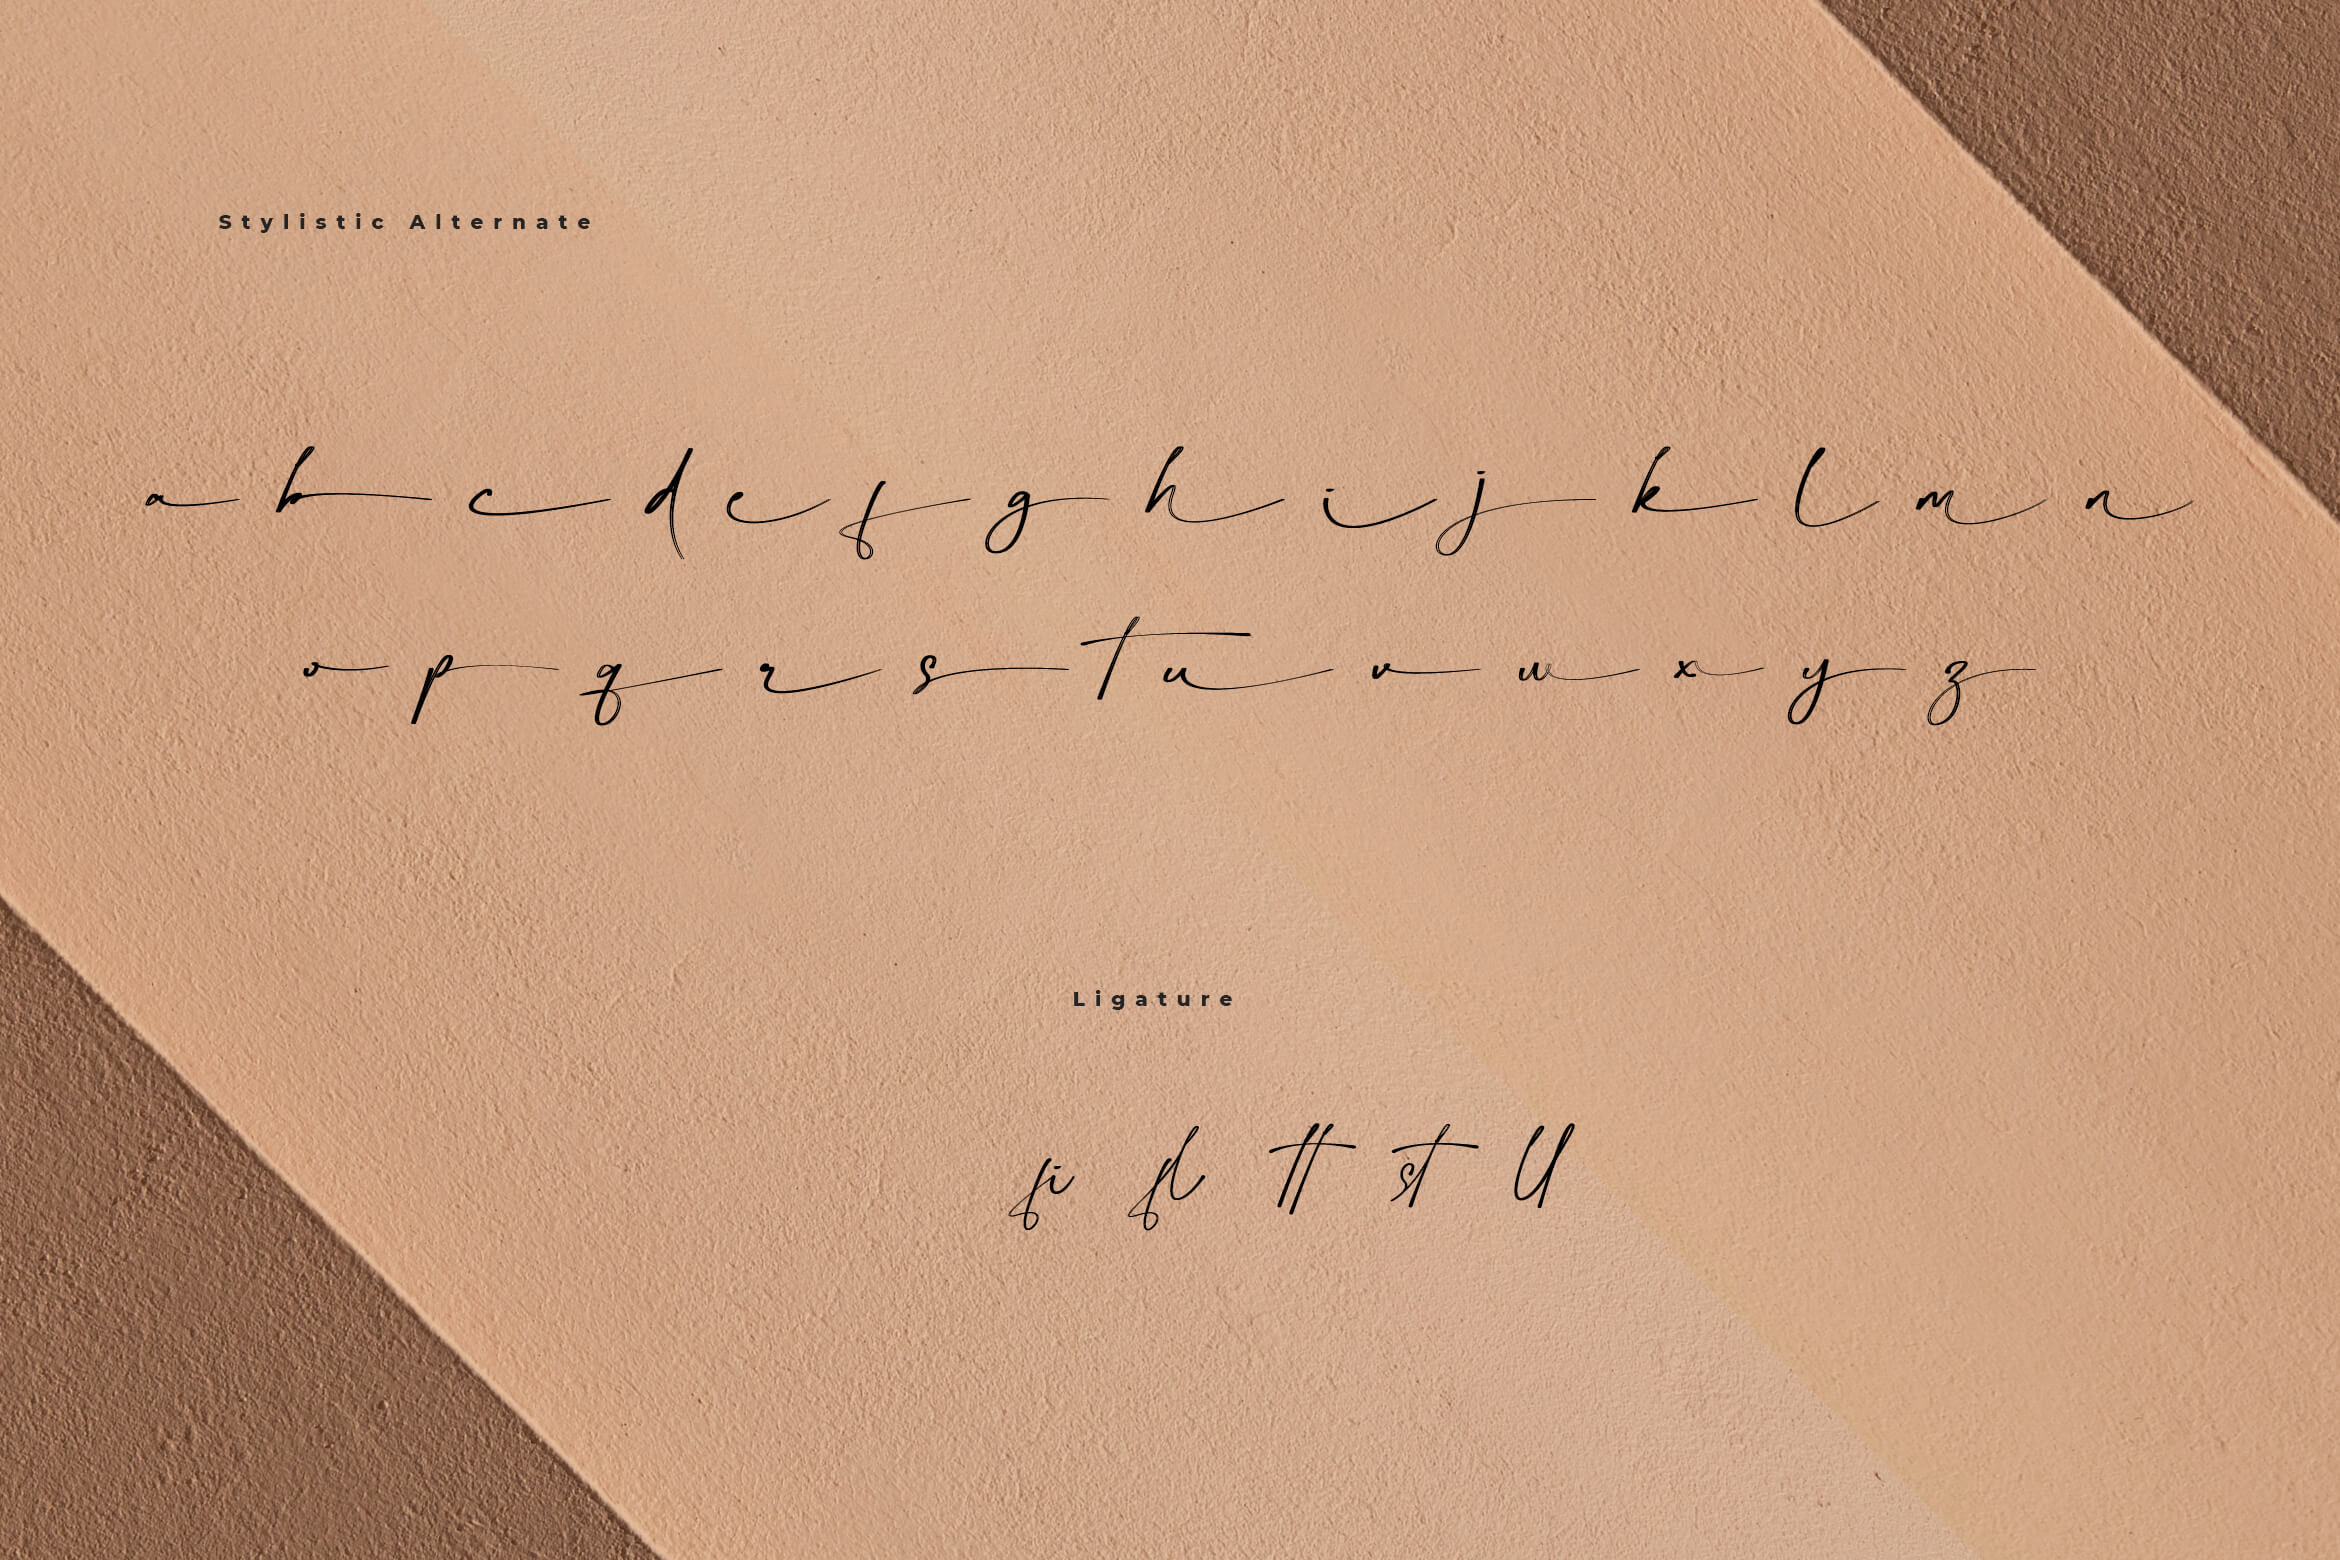 Stylistic Alternate
a b c d e f g h i j k l m n
o p q r s t u v w x y z
Ligature
fi fl tt st ll